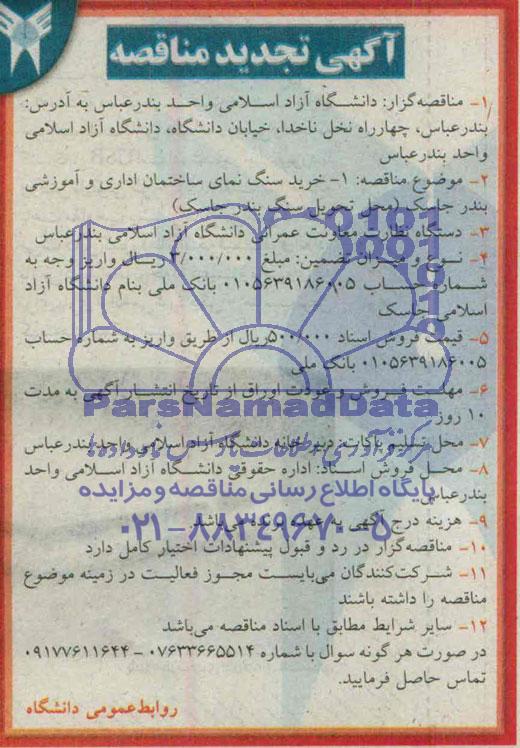 آگهی تجدید مناقصه
۱- مناقصه‌گزار: دانشگاه آزاد اسلامی واحد بندرعباس به آدرس:
بندرعباس، چهارراه نخل ناخدا، خیابان دانشگاه، دانشگاه آزاد اسلامی
واحد بندرعباس
۲- موضوع مناقصه: ۱- خرید سنگ نمای ساختمان اداری و آموزشی
بندر جاسک (محل تحویل سنگ بندر جاسک)
۳- دستگاه نظارت معاونت عمرانی دانشگاه آزاد اسلامی بندرعباس
۴- نوع و میزان تضمین: مبلغ ۳/۰۰۰/۰۰۰ ریال واریز وجه به
شماره حساب ۰۱۰۵۶۳۹۱۸۶۰۰۵ بانک ملی بنام دانشگاه آزاد
اسلامی جاسک
۵- قیمت فروش اسناد ۵۰۰/۰۰۰ریال از طریق واریز به شماره حساب
۰۱۰۵۶۳۹۱۸۶۰۰۵ بانک ملی
۶- مهلت فروش و عودت اوراق از تاریخ انتشار آگهی به مدت
۱۰ روز
ParsNamadData
۷- محل تسلیم پاکات: دبیرخانه دانشگاه آزاد اسلامی واحد بندرعباس
مرکز فرآوری اطلاعات پارس نماد داده‌ها
۸- محل فروش اسناد: اداره حقوقی دانشگاه آزاد اسلامی واحد
بندرعباس
پایگاه اطلاع رسانی مناقصه و مزایده
۹- هزینه درج آگهی به عهده برنده می‌باشد.
۰۲۱-۸۸۳۴۹۶۷۰-۵
۱۰- مناقصه‌گزار در رد و قبول پیشنهادات اختیار کامل دارد
۱۱- شرکت‌کنندگان می‌بایست مجوز فعالیت در زمینه موضوع
مناقصه را داشته باشند
۱۲- سایر شرایط مطابق با اسناد مناقصه می‌باشد
در صورت هر گونه سوال با شماره ۰۷۶۳۳۶۶۵۵۱۴ - ۰۹۱۷۷۶۱۱۶۴۴
تماس حاصل فرمایید.
روابط عمومی دانشگاه